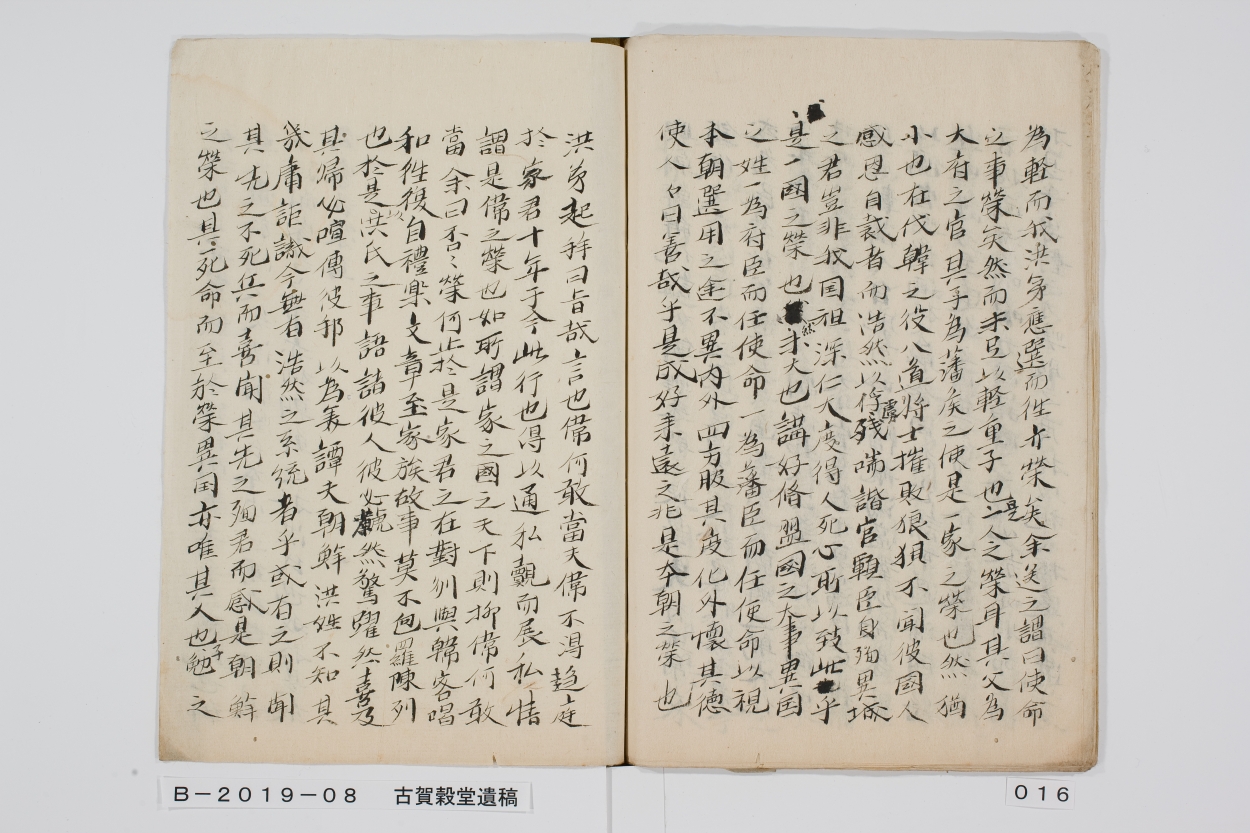 為軽而我洪弟應選而徃亦榮矣余送之謂曰使命
之事榮矣然而未足以軽重子也是一人之榮耳其父為
大府之官其子為藩矦之使是一家之榮也然猶
小也在伐韓之役八道将士摧敗狼狽不聞彼國人
感恩自裁者而浩然以俘虜残喘諧官願臣身殉異域
之君豈非我国祖深仁大度得人死心所以致此乎
是一國之榮也然未大也講好脩盟國之大事異国
之姓一為府臣而任使命一為藩臣而任使命以視
本朝選用之途不異内外四方服其皮化外懷其徳
使人人曰善哉乎是成好柔遠之非是本朝之榮也
洪弟起拜曰旨哉言也僃何敢當夫僃不得趨庭
於家君十年于今此行也得以通私覿而展私情
謂是僃之榮也如所謂家之國之天下則抑僃何敢
當余曰否〻榮何止於是家君之在對州與韓客唱
和徃復自禮樂文章至家族故事莫不包羅陳列
也於是以洪氏之事語諸彼人彼必然驚躍然喜及
其帰必喧傳彼邦以為美譚夫朝鮮洪姓不知其
幾庸詎識今無有浩然之系統者乎或有之則聞
其先之不死兵而喜聞其先之殉君而感是朝鮮
之榮也具死命而至於榮異国亦唯其人也子勉之
B－2019－08　古賀穀堂遺稿
016